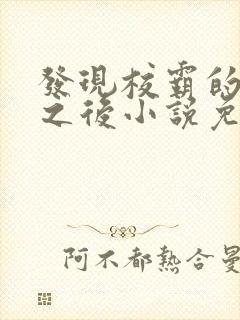 發現校霸的
之後小說免
阿不都熱合曼